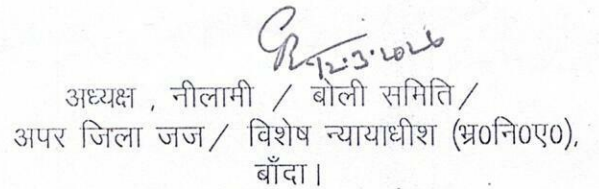 12.3.2026
अध्यक्ष , नीलामी / बोली समिति /
अपर जिला जज / विशेष न्यायाधीश (भ्र0नि0ए0),
बाँदा।